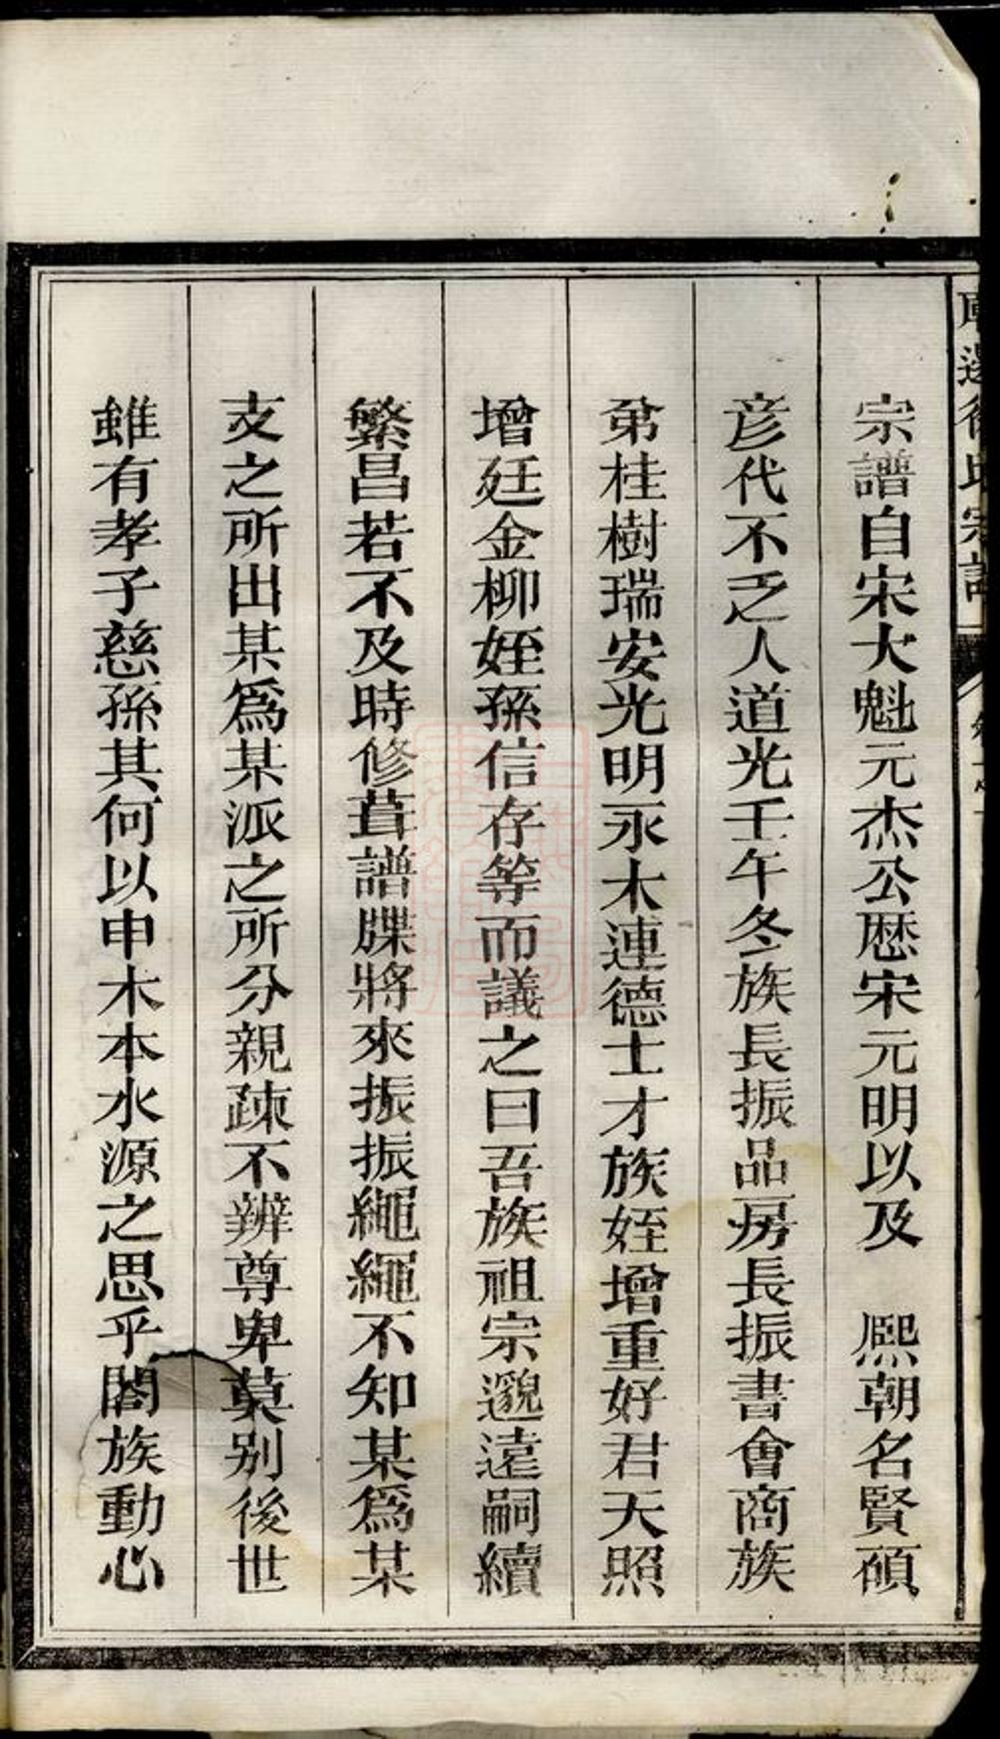 宗譜自宋大魁元杰公歷宋元明以及　熙朝名賢碩
彦代不乏人道光壬午冬族長振品房長振書會商族
弟桂樹瑞安光明永木連德士才族姪增重好君天照
增廷金柳姪孫信存等而議之曰吾族祖宗邈遠嗣續
繁昌若不及時修葺譜牒將來振振繩繩不知某爲某
支之所出某爲某派之所分親疎不辨尊卑莫别後世
雖有孝子慈孫其何以申木本水源之思乎闔族動心